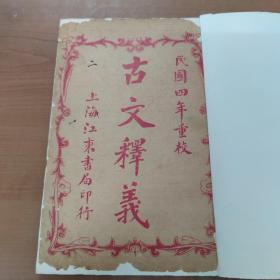 民國四年重校
古文釋義
二
上海江東書局印行